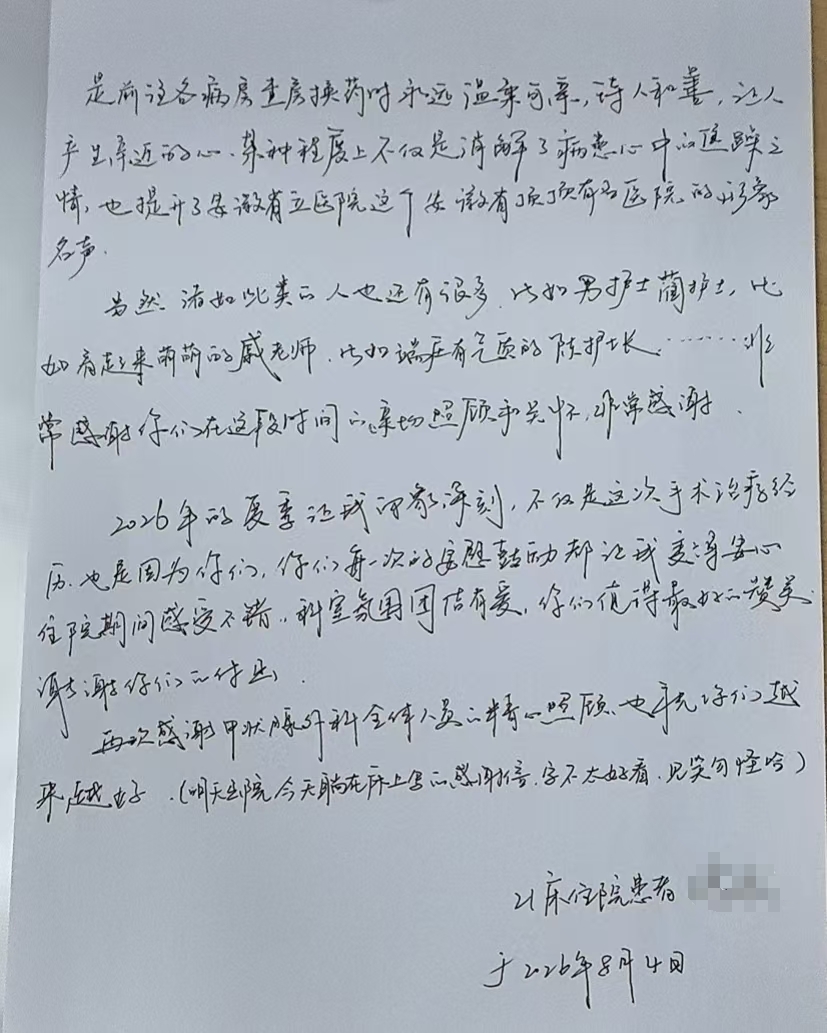 是前往各病房查房换药时永远温柔可亲,待人和善,让人
产生亲近的心.某种程度上不仅是消解了病患心中的焦躁之
情,也提升了安徽省立医院这个安徽省顶顶有名医院的形象
名声.
当然 诸如此类的人也还有很多.比如男护士蔺护士,比
如看起来萌萌的戚老师.比如端庄有气质的陈护士长.……非
常感谢你们在这段时间的亲切照顾和关怀,非常感谢.
2026年的夏季让我印象深刻,不仅是这次手术治疗经
历.也是因为你们,你们每一次的安慰鼓励都让我变得安心
住院期间感受不错,科室氛围团结有爱,你们值得最好的赞美.
谢谢你们的付出.
再次感谢甲状腺外科全体人员的精心照顾.也祝你们越
来越好.(明天出院今天躺在床上写的感谢信.字不太好看.见笑勿怪哈)
21床住院患者
于2026年8月4日